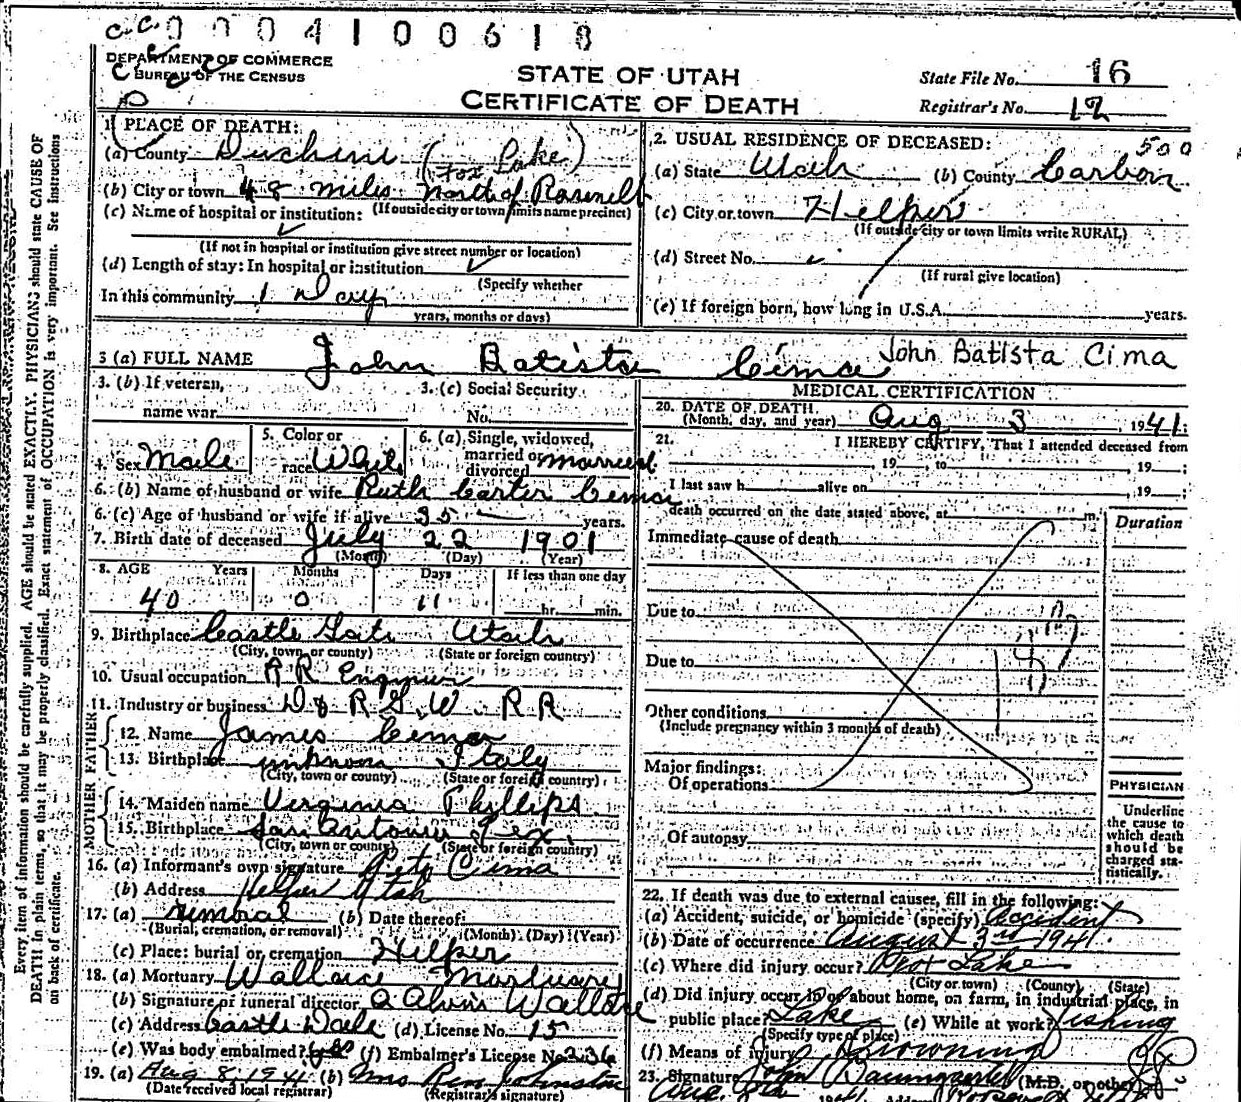 0004100618
DEPARTMENT OF COMMERCE
BUREAU OF THE CENSUS
STATE OF UTAH
CERTIFICATE OF DEATH
State File No. 16
Registrar's No. 12
1. PLACE OF DEATH:
(a) County Duchesne (Fox Lake)
(b) City or town 48 miles north of Roosevelt
(If outside city or town limits name precinct)
(c) Name of hospital or institution:
(If not in hospital or institution give street number or location)
(d) Length of stay: In hospital or institution
(Specify whether
In this community 1 Day
years, months or days)
2. USUAL RESIDENCE OF DECEASED: 500
(a) State Utah (b) County Carbon
(c) City or town Helper
(If outside city or town limits write RURAL)
(d) Street No.
(If rural give location)
(e) If foreign born, how long in U.S.A. years.
3 (a) FULL NAME John Batista Cima John Batista Cima
3. (b) If veteran,
name war
3. (c) Social Security
No.
4. Sex Male
5. Color or
race White
6. (a) Single, widowed,
married or
divorced married
6. (b) Name of husband or wife Ruth Carter Cima
6. (c) Age of husband or wife if alive 35 years.
7. Birth date of deceased July 22 1901
(Month) (Day) (Year)
8. AGE Years Months Days If less than one day
40 0 11 hr. min.
9. Birthplace Castle Gate Utah
(City, town, or county) (State or foreign country)
10. Usual occupation R R Engineer
11. Industry or business D & R G. W. R R
FATHER
12. Name James Cima
13. Birthplace unknown Italy
(City, town or county) (State or foreign country)
MOTHER
14. Maiden name Verginia Phyllips
15. Birthplace San Antonio Tex.
(City, town or county) (State or foreign country)
16. (a) Informant's own signature Pete Cima
(b) Address Helper Utah
17. (a) removal (b) Date thereof:
(Burial, cremation, or removal) (Month) (Day) (Year)
(c) Place: burial or cremation Helper
18. (a) Mortuary Wallace Mortuary
(b) Signature of funeral director A Alvin Wallace
(c) Address Castle Dale (d) License No. 15
(e) Was body embalmed? yes (f) Embalmer's License No. 236
19. (a) Aug 8, 1941 (b) Mrs Johnston
(Date received local registrar) (Registrar's signature)
MEDICAL CERTIFICATION
20. DATE OF DEATH
(Month, day, and year) Aug 3 1941
21. I HEREBY CERTIFY, That I attended deceased from
, 19 , to , 19 ;
I last saw h alive on , 19 ;
death occurred on the date stated above, at m.
Immediate cause of death
Duration
Due to
Due to
Other conditions
(Include pregnancy within 3 months of death)
Major findings:
Of operations
Of autopsy
PHYSICIAN
Underline
the cause to
which death
should be
charged sta-
tistically.
22. If death was due to external causes, fill in the following:
(a) Accident, suicide, or homicide (specify) Accident
(b) Date of occurrence August 3rd 1941.
(c) Where did injury occur? Fox Lake
(City or town) (County) (State)
(d) Did injury occur in or about home, on farm, in industrial place, in
public place? Lake (e) While at work? fishing
(Specify type of place)
(f) Means of injury Drowning
23. Signature John Baumgartel (M.D. or other)
Every item of information should be carefully supplied. AGE should be stated EXACTLY. PHYSICIANS should state CAUSE OF
DEATH in plain terms, so that it may be properly classified. Exact statement of OCCUPATION is very important. See instructions
on back of certificate.